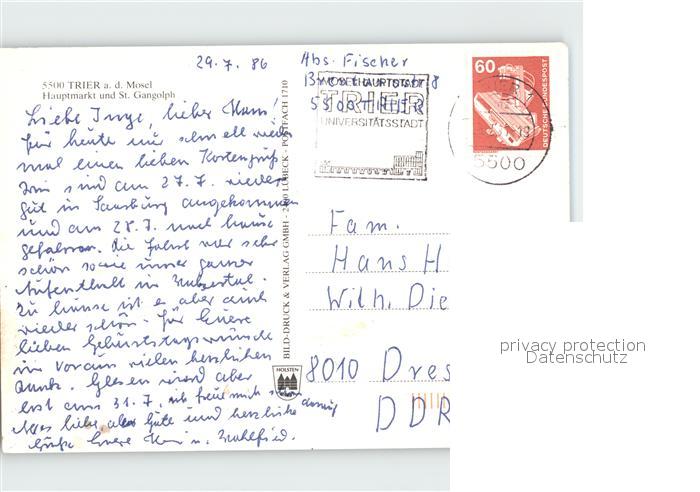 29.7.86
Abs. Fischer
5500 TRIER
5500 TRIER a. d. Mosel
Hauptmarkt und St. Gangolph
MOSELHAUPTSTADT
TRIER
UNIVERSITÄTSSTADT
60
DEUTSCHE BUNDESPOST
5500
Liebe Inge, lieber Hans!
für heute nur schnell wieder
mal einen lieben Kartengruß
Wir sind am 27.7. wieder
gut in Saarburg angekommen
und am 28.7. nach hause
gefahren. Die Fahrt war sehr
schön sowie unser ganzer
Aufenthalt im
Zu hause ist es aber auch
wieder schön. Für Euere
lieben Geburtstagswünsche
im Voraus vielen herzlichen
Dank. wird aber
erst am 31.7. ich freue mich schon darauf
Alles liebe, alles Gute und herzliche
Grüße Euere u.
BILD-DRUCK & VERLAG GMBH · 2400 LÜBECK · POSTFACH 1710
HOLSTEN
Fam.
Hans H
Wilh. Die
8010 Dres
DDR
privacy protection
Datenschutz